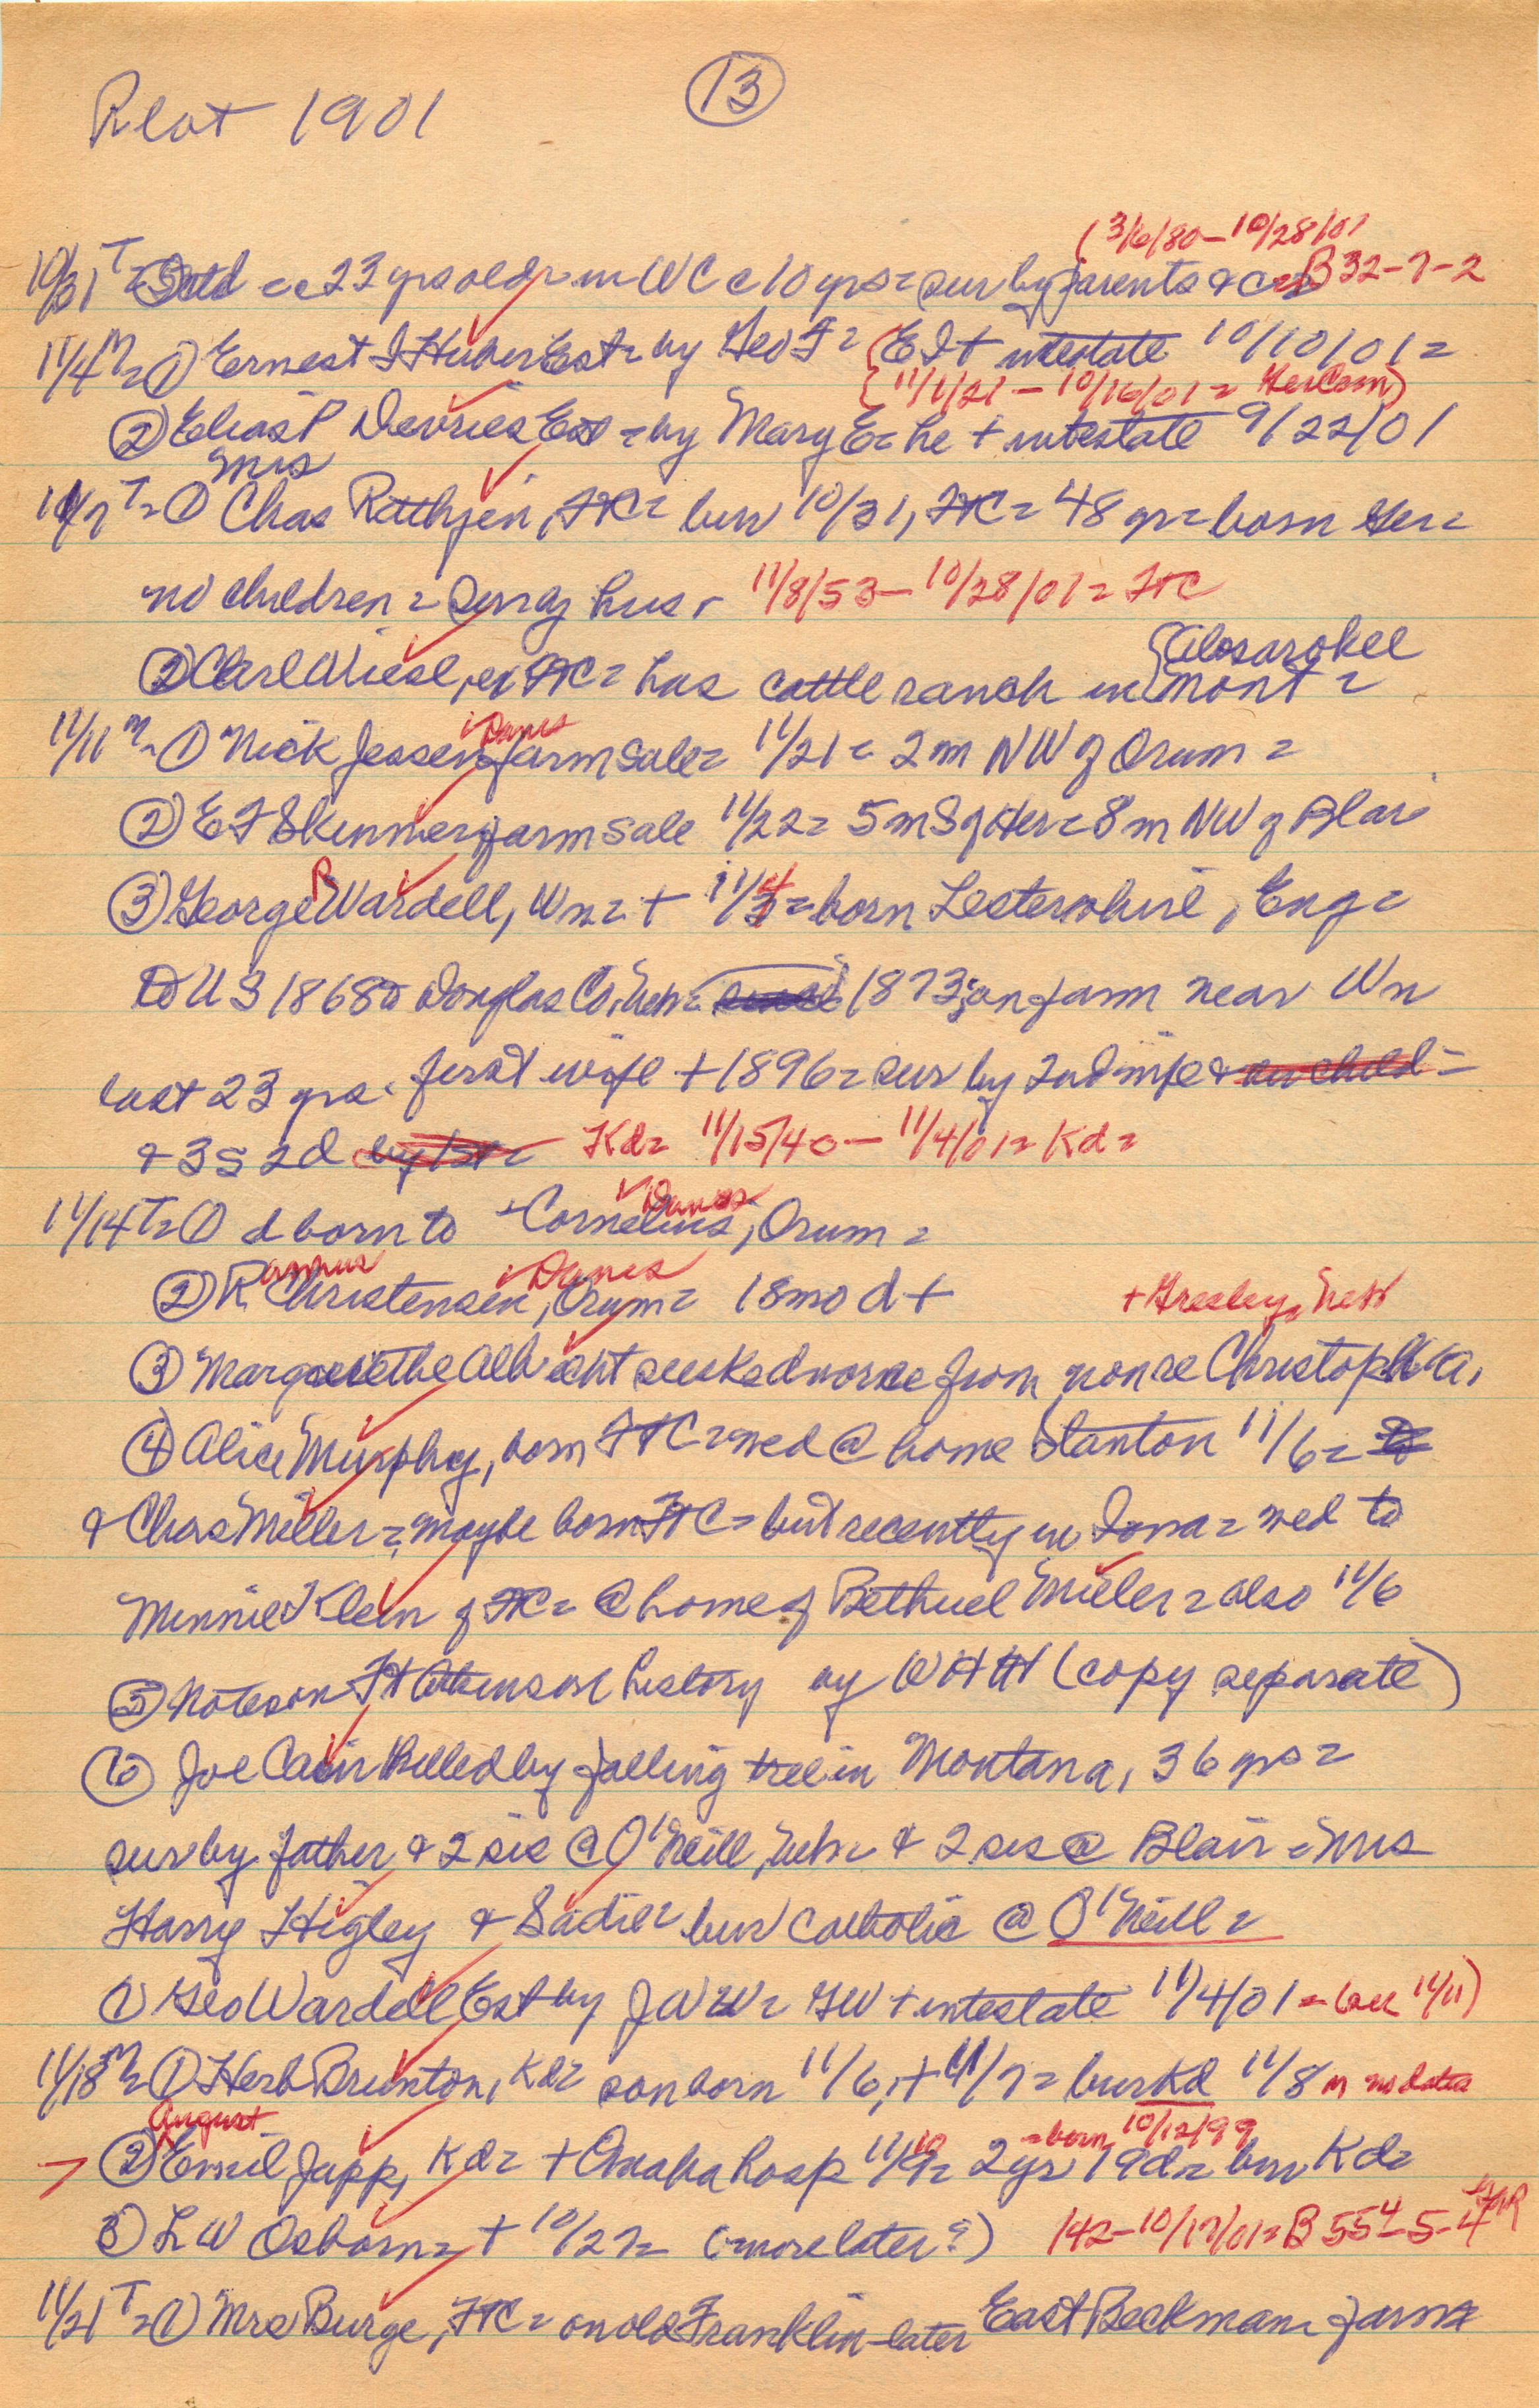 13
1901
(3/6/80 - 10/28/01
10/31 T = 23 yrs old = in WC c 10 yrs = sur by parents & = B 32-7-2
11/4 M = ① Ernest I Huber Est = by Geo F = (E I + intestate 10/10/01 =
(11/1/21 - 10/16/01 = HerCem)
② Elias P Devries Est = by Mary E = he + intestate 9/22/01
Mrs
11/7 T = ① Chas Rathjen, FtC = bur 10/31, FtC = 48 yr = born Ger =
no children = sur by hus 11/8/53 - 10/28/01 = FtC
Absarokee
② Carl Wiese, ex FtC = has cattle ranch in Mont =
Danes
11/11 M = ① Nick Jessen farm sale = 11/21 = 2 m NW of Orum =
② E F Skinner farm sale 11/22 = 5 m S of Her = 8 m NW of Blair
③ George R Wardell, Wn = + 11/4 = born Lestershire, Eng =
to US 1868 to Douglas Co, Neb = 1873; on farm near Wn
last 23 yrs. first wife + 1896 = sur by 2nd wife & no child =
& 3 s 2 d by 1st = Kd = 11/15/40 - 11/4/01 = Kd =
Danes
11/14 T = ① d born to Cornelius, Orum =
asmus Danes
② R. Christensen, Orum = 18 mo d +
+ Greeley, Neb
③ Margarethe Albrecht seeks divorce from non re Christoph A.
④ Alice Murphy, born FtC = wed @ home Stanton 11/6 = to
& Chas Miller = maybe born FtC = but recently in Iowa = wed to
Minnie Klein of FtC = @ home of Bethuel Miller = also 11/6
⑤ Notes on Ft Atkinson history by WHW (copy separate)
⑥ Joe Cain killed by falling tree in Montana, 36 yrs =
sur by father & 2 sis @ O'Neill, Neb = & 2 sis @ Blair = Mrs
Harry Higley & Sadie = bur Catholic @ O'Neill =
⑦ Geo Wardell Est by J W W = GW + intestate 11/4/01 = (see 11/11)
11/18 M = ① Herb Brunton, Kd = son born 11/6, + 11/7 = bur Kd 11/8 no dates
August = born 10/12/99
② Emil Japp, Kd = + Omaha hosp 11/10 = 2 yrs 19 d = bur Kd =
③ L W Osborn = + 10/27 = (more later?) 142 - 10/17/01 = B 55 4 - 5 - 4
11/21 T = ① Mrs Burge, FtC = on old Franklin - later East Beckman farm =